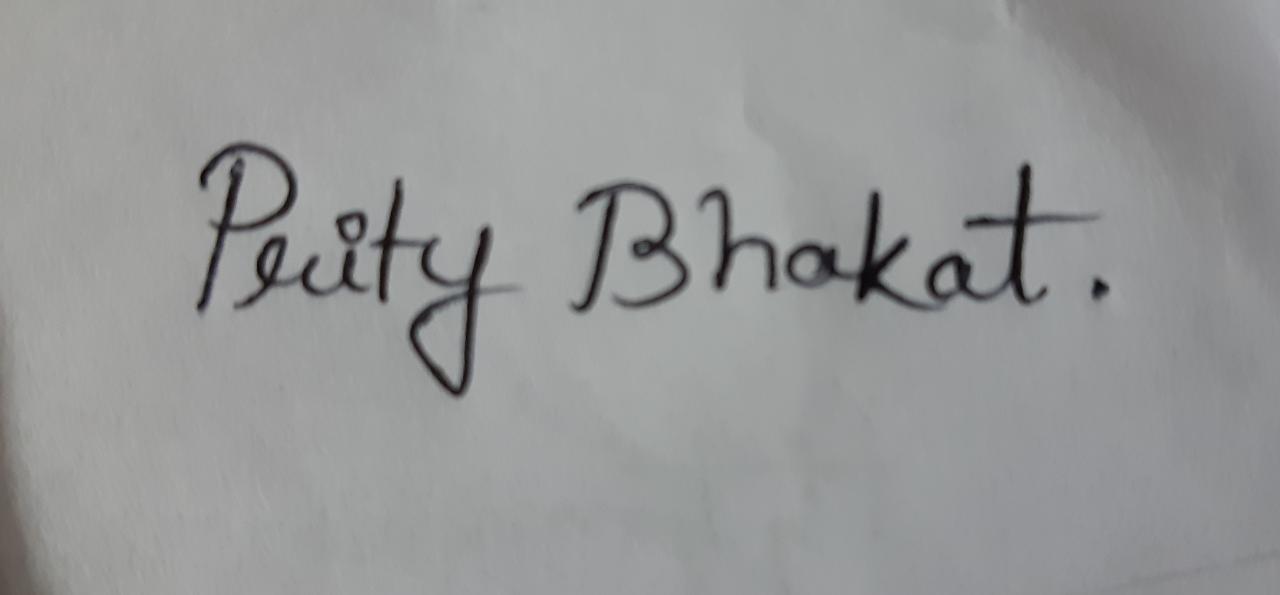 Prity Bhakat.